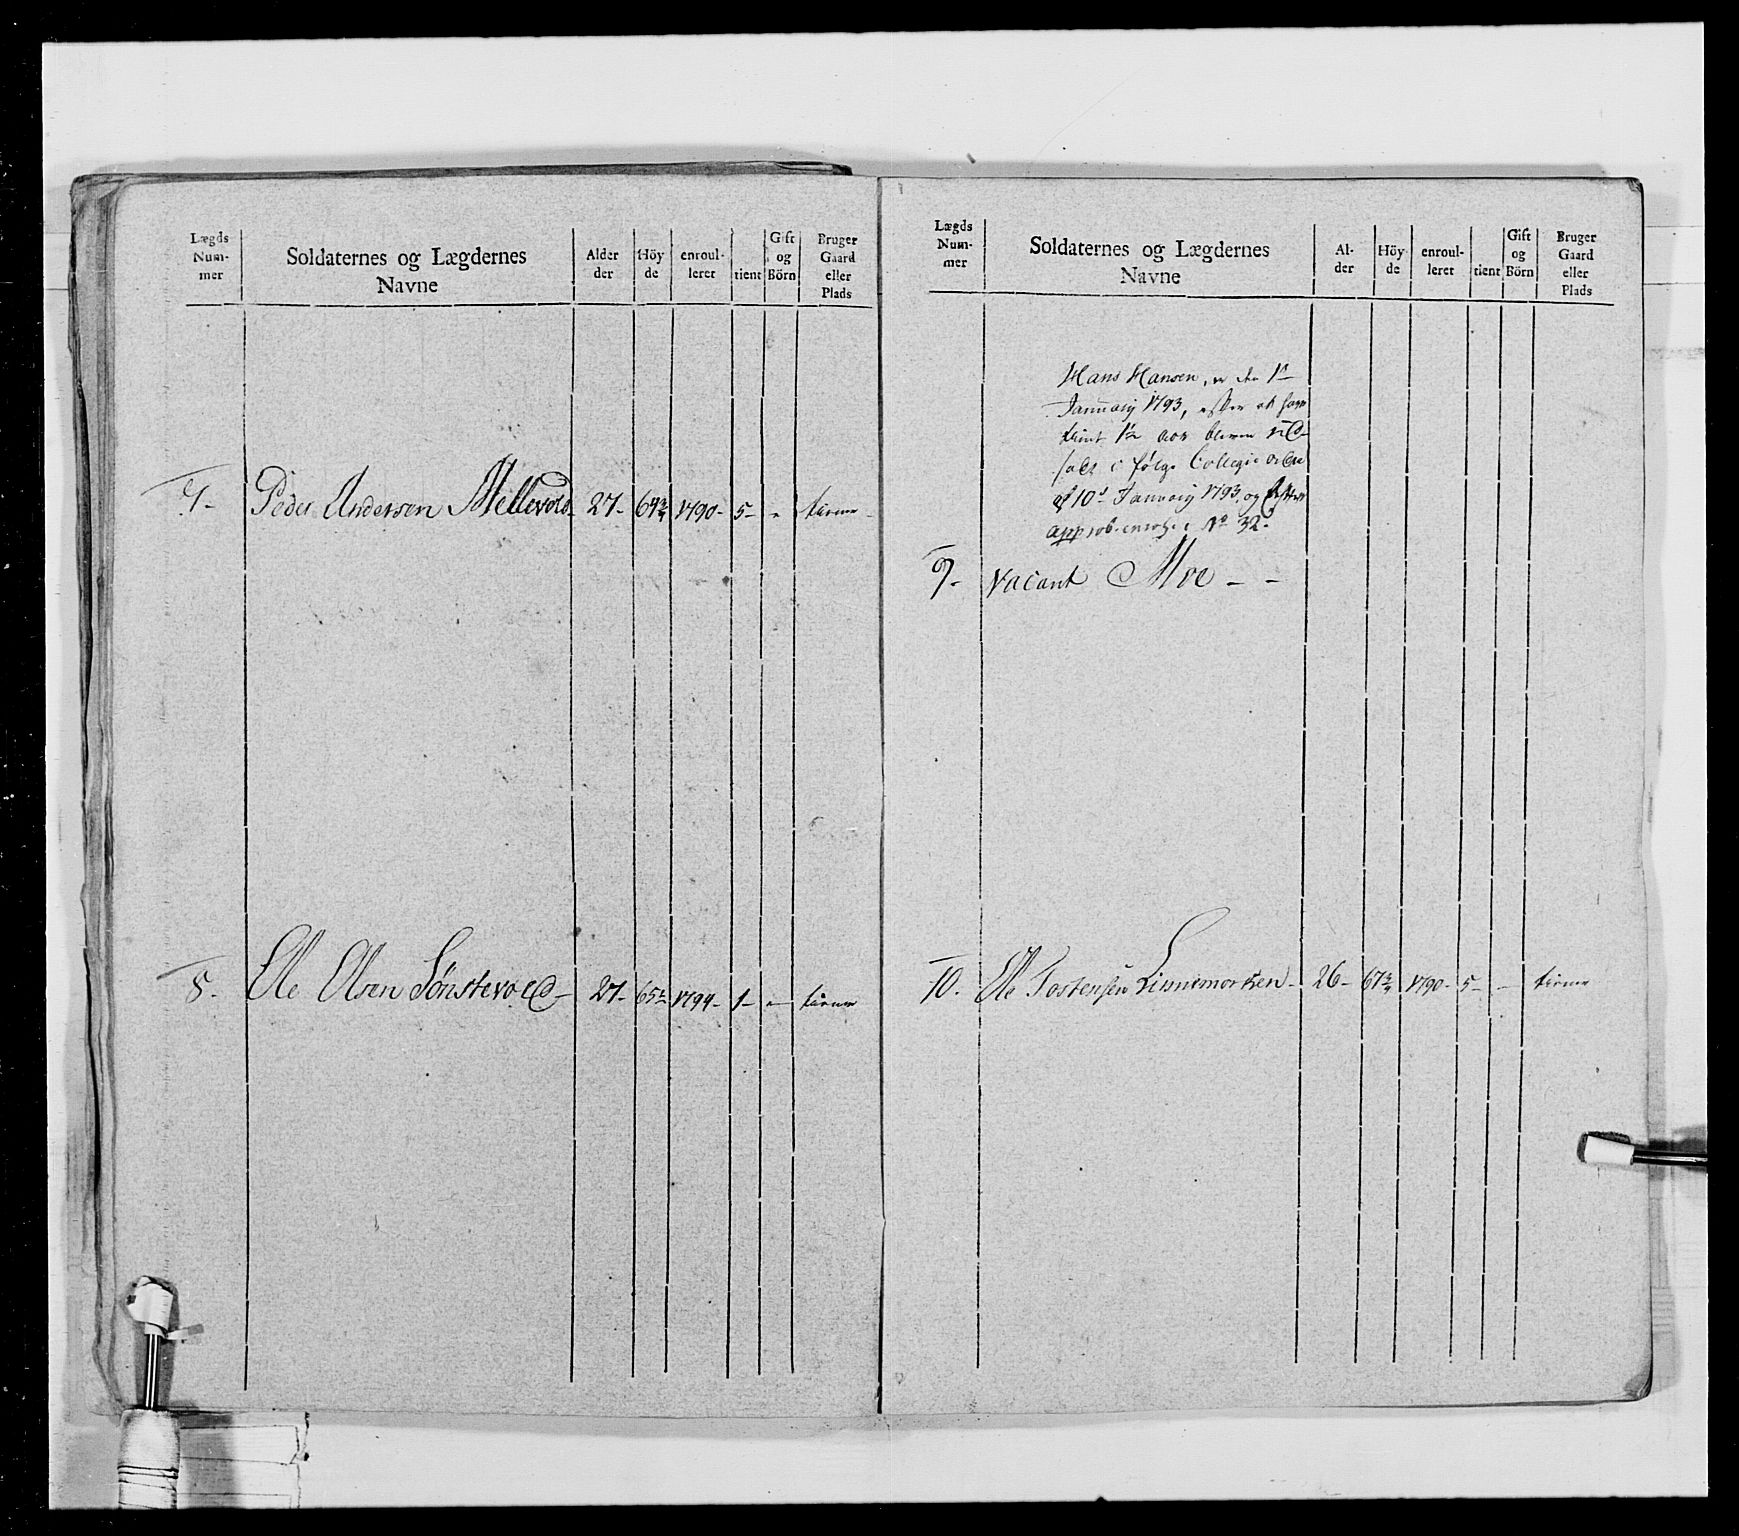 Lægds
Num-
mer
Soldaternes og Lægdernes
Navne
Alder
der
Höy
de
enroul-
leret
tient
Gift
og
Börn
Bruger
Gaard
eller
Plads
7. Peder Andersen Mellevold 27- 64¾ 1790- 5- - tienner
8. Ole Olsen Sønstevold- 27- 65½ 1794- 1- - tienner
Lægds
Num-
mer
Soldaternes og Lægdernes
Navne
Al-
der
Höy-
de
enroul-
leret
tient
Gift
og
Börn
Bruger
Gaard
eller
Plads
Hans Hansen, er den 1te
January 1793, efter at have
tient 1½ aar bleven ud-
sadt i følge Collegie ordre
af 10de January 1793, og
approb. No 32-
9. Vacant Moe - -
10. Ole Tostensen Linnemorken- 26- 67¾ 1790- 5- - tienner